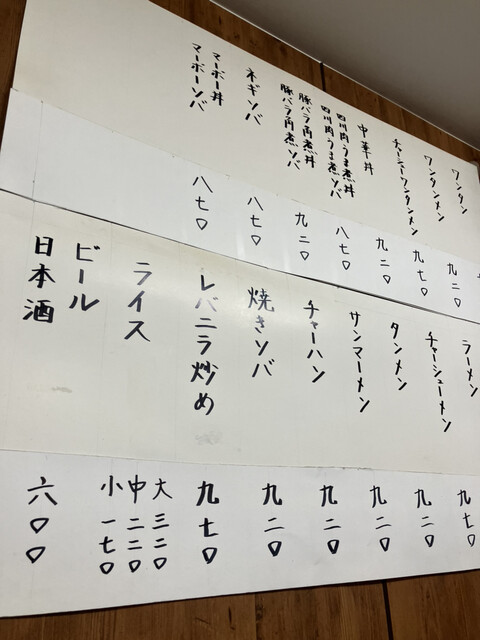 ワンタン
ワンタンメン
チャーシーワンタンメン
中華丼
四川肉うま煮丼
四川肉うま煮ソバ
豚バラ角煮丼
豚バラ角煮ソバ
ネギソバ
マーボー丼
マーボーソバ
九二〇
九七〇
九二〇
八七〇
九二〇
八七〇
八七〇
ラーメン
チャーシューメン
タンメン
サンマーメン
チャーハン
焼きソバ
レバニラ炒め
ライス
ビール
日本酒
九七〇
九二〇
九二〇
九二〇
九二〇
九七〇
大三二〇
中二二〇
小一七〇
六〇〇